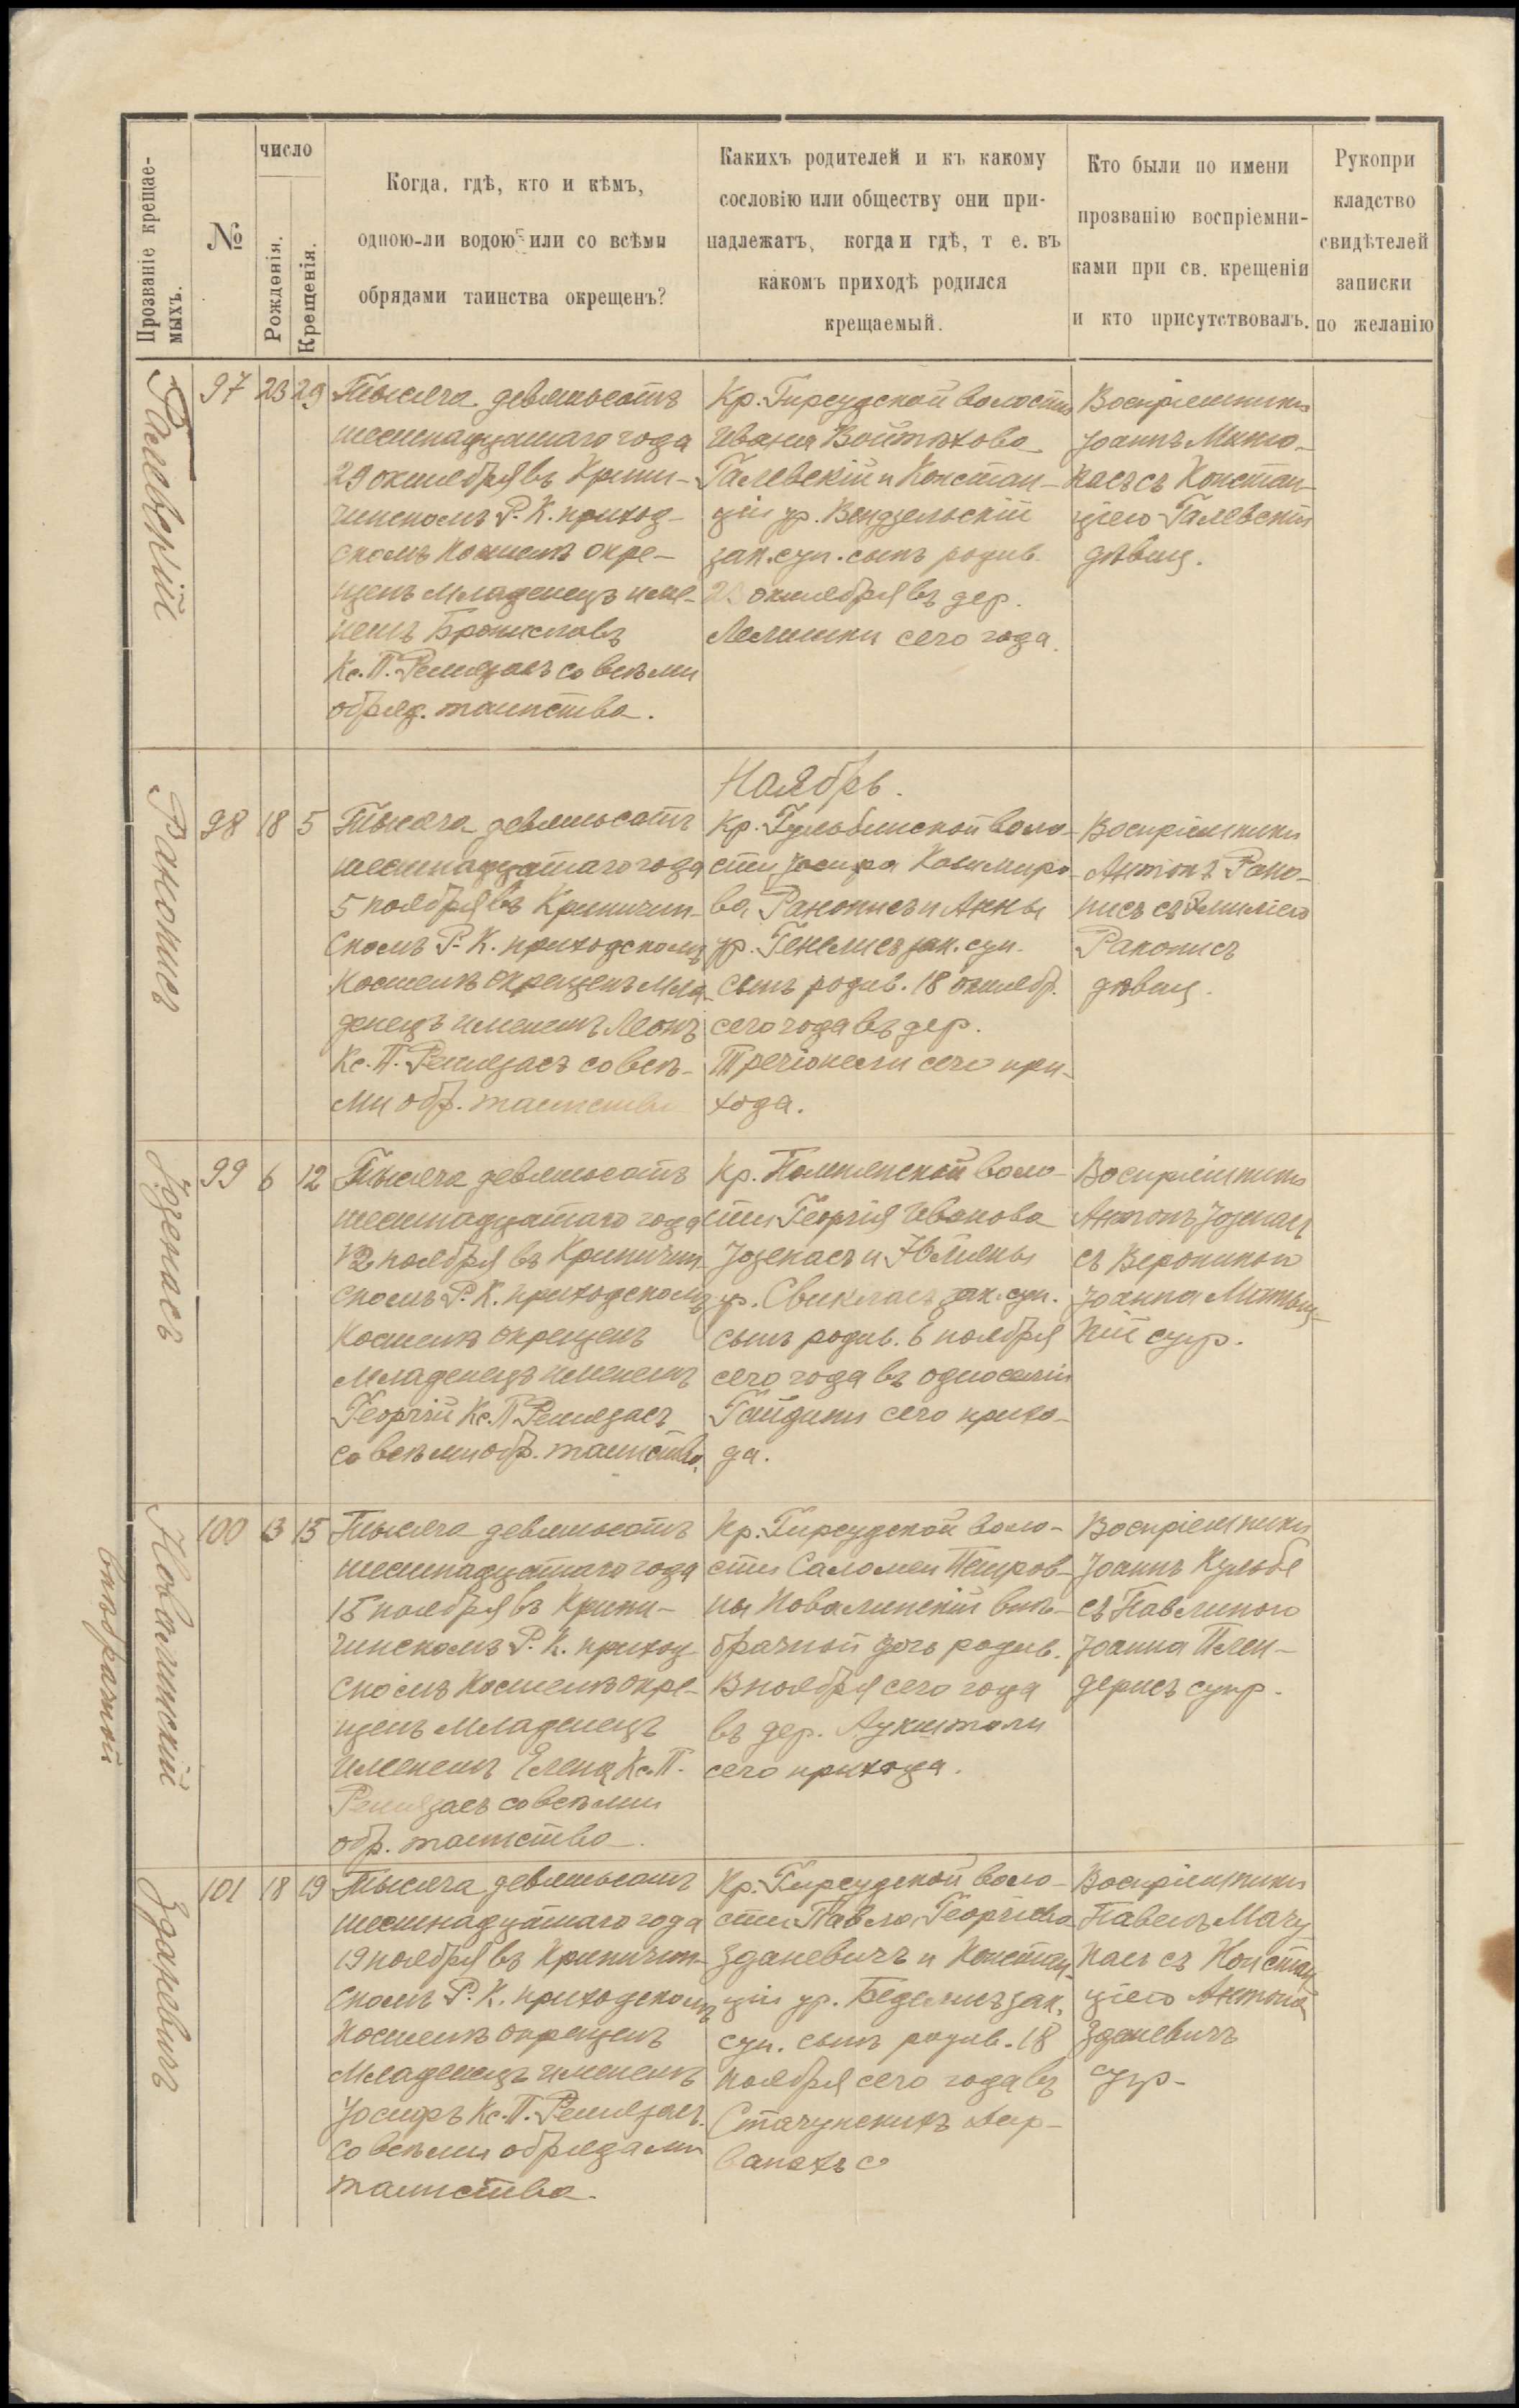 Прозваніе крещае-
мыхъ.
№
число
Рожденія.
Крещенія.
Когда, гдѣ, кто и кѣмъ,
одною-ли водою или со всѣми
обрядами таинства окрещенъ?
Каихъ родителей и къ какому
сословію или обществу они при-
надлежатъ, когда и гдѣ, т е. въ
какомъ приходѣ родился
крещаемый.
Кто были по имени
прозванію воспріемни-
ками при св. крещеніи
и кто присутствовалъ.
Рукопри
кладство
свидѣтелей
записки
по желанію
Галевскій
97 23 29
Тысяча девятьсотъ
шестнадцатаго года
29 октября въ Крини-
чинскомъ Р. К. приход-
скомъ костелѣ окре-
щенъ младенецъ име-
немъ Брониславъ
Кс. П. Ремейзасъ со всѣми
обряд. таинства.
Кр. Гирсудской волости
Ивана Войтѣхова
Галевскій и Констан-
ціи ур. Вендзельскій
зак. суп. сынъ родив.
октября въ дер.
сего года.
Воспріемники
Іоаннъ
съ Констан-
ціею Галевскій
дѣвиц.
Ноябрь.
Ракопись
98 18 5
Тысяча девятьсотъ
шестнадцатаго года
5 ноября въ Криничин-
скомъ Р. К. приходскомъ
костелѣ окрещенъ мла-
денецъ именемъ Леонъ
Кс. П. Ремейзасъ со всѣ-
ми обр. таинства
Кр. воло-
сти Іосифа Казимиро-
ва Ракописъ и Анны
ур. зак. суп.
сынъ родив. 18 октябр.
сего года въ дер.
Тречіокели сего при-
хода.
Воспріемники
Антонъ Рако-
писъ съ Эмиліею
Ракописъ
дѣвиц.
Юзенасъ
99 6 12
Тысяча девятьсотъ
шестнадцатаго года
12 ноября въ Криничин-
скомъ Р. К. приходскомъ
костелѣ окрещенъ
младенецъ именемъ
Георгій Кс. П Ремейзасъ
со всѣми обр. таинства.
Кр. воло-
сти Георгія Иванова
Юзенасъ и
ур. Свикласъ зак. суп.
сынъ родив. 6 ноября
сего года въ односеліи
Гайдили сего прихо-
да.
Воспріемники
Антонъ Юзенасъ
съ Вероникою
Іоанна
супр.
Ковалинскій
внѣбрачной
100 13 15
Тысяча девятьсотъ
шестнадцатаго года
15 ноября въ Крини-
чинскомъ Р. К. приход-
скомъ костелѣ окре-
щенъ младенецъ
именемъ Елена Кс. П.
Ремейзасъ со всѣми
обр. таинства.
Кр. Гирсудской воло-
сти Саломеи Петров-
ны Ковалинскій внѣ-
брачной дочь родив.
13 ноября сего года
въ дер. Аукштоли
сего прихода.
Воспріемники
Іоаннъ Кульбе
съ Павлиною
Іоанна
супр.
Зданевичъ
101 18 19
Тысяча девятьсотъ
шестнадцатаго года
19 ноября въ Криничин-
скомъ Р. К. приходскомъ
костелѣ окрещенъ
младенецъ именемъ
Іосифъ Кс. П. Ремейзасъ
со всѣми обрядами
таинства.
Кр. Гирсудской воло-
сти Павла Георгіева
Зданевичъ и Констан-
ціи ур. зак.
суп. сынъ родив. 18
ноября сего года въ
Воспріемники
Павелъ Мачу
касъ съ Констан
ціею Антона
Зданевичъ
супр.